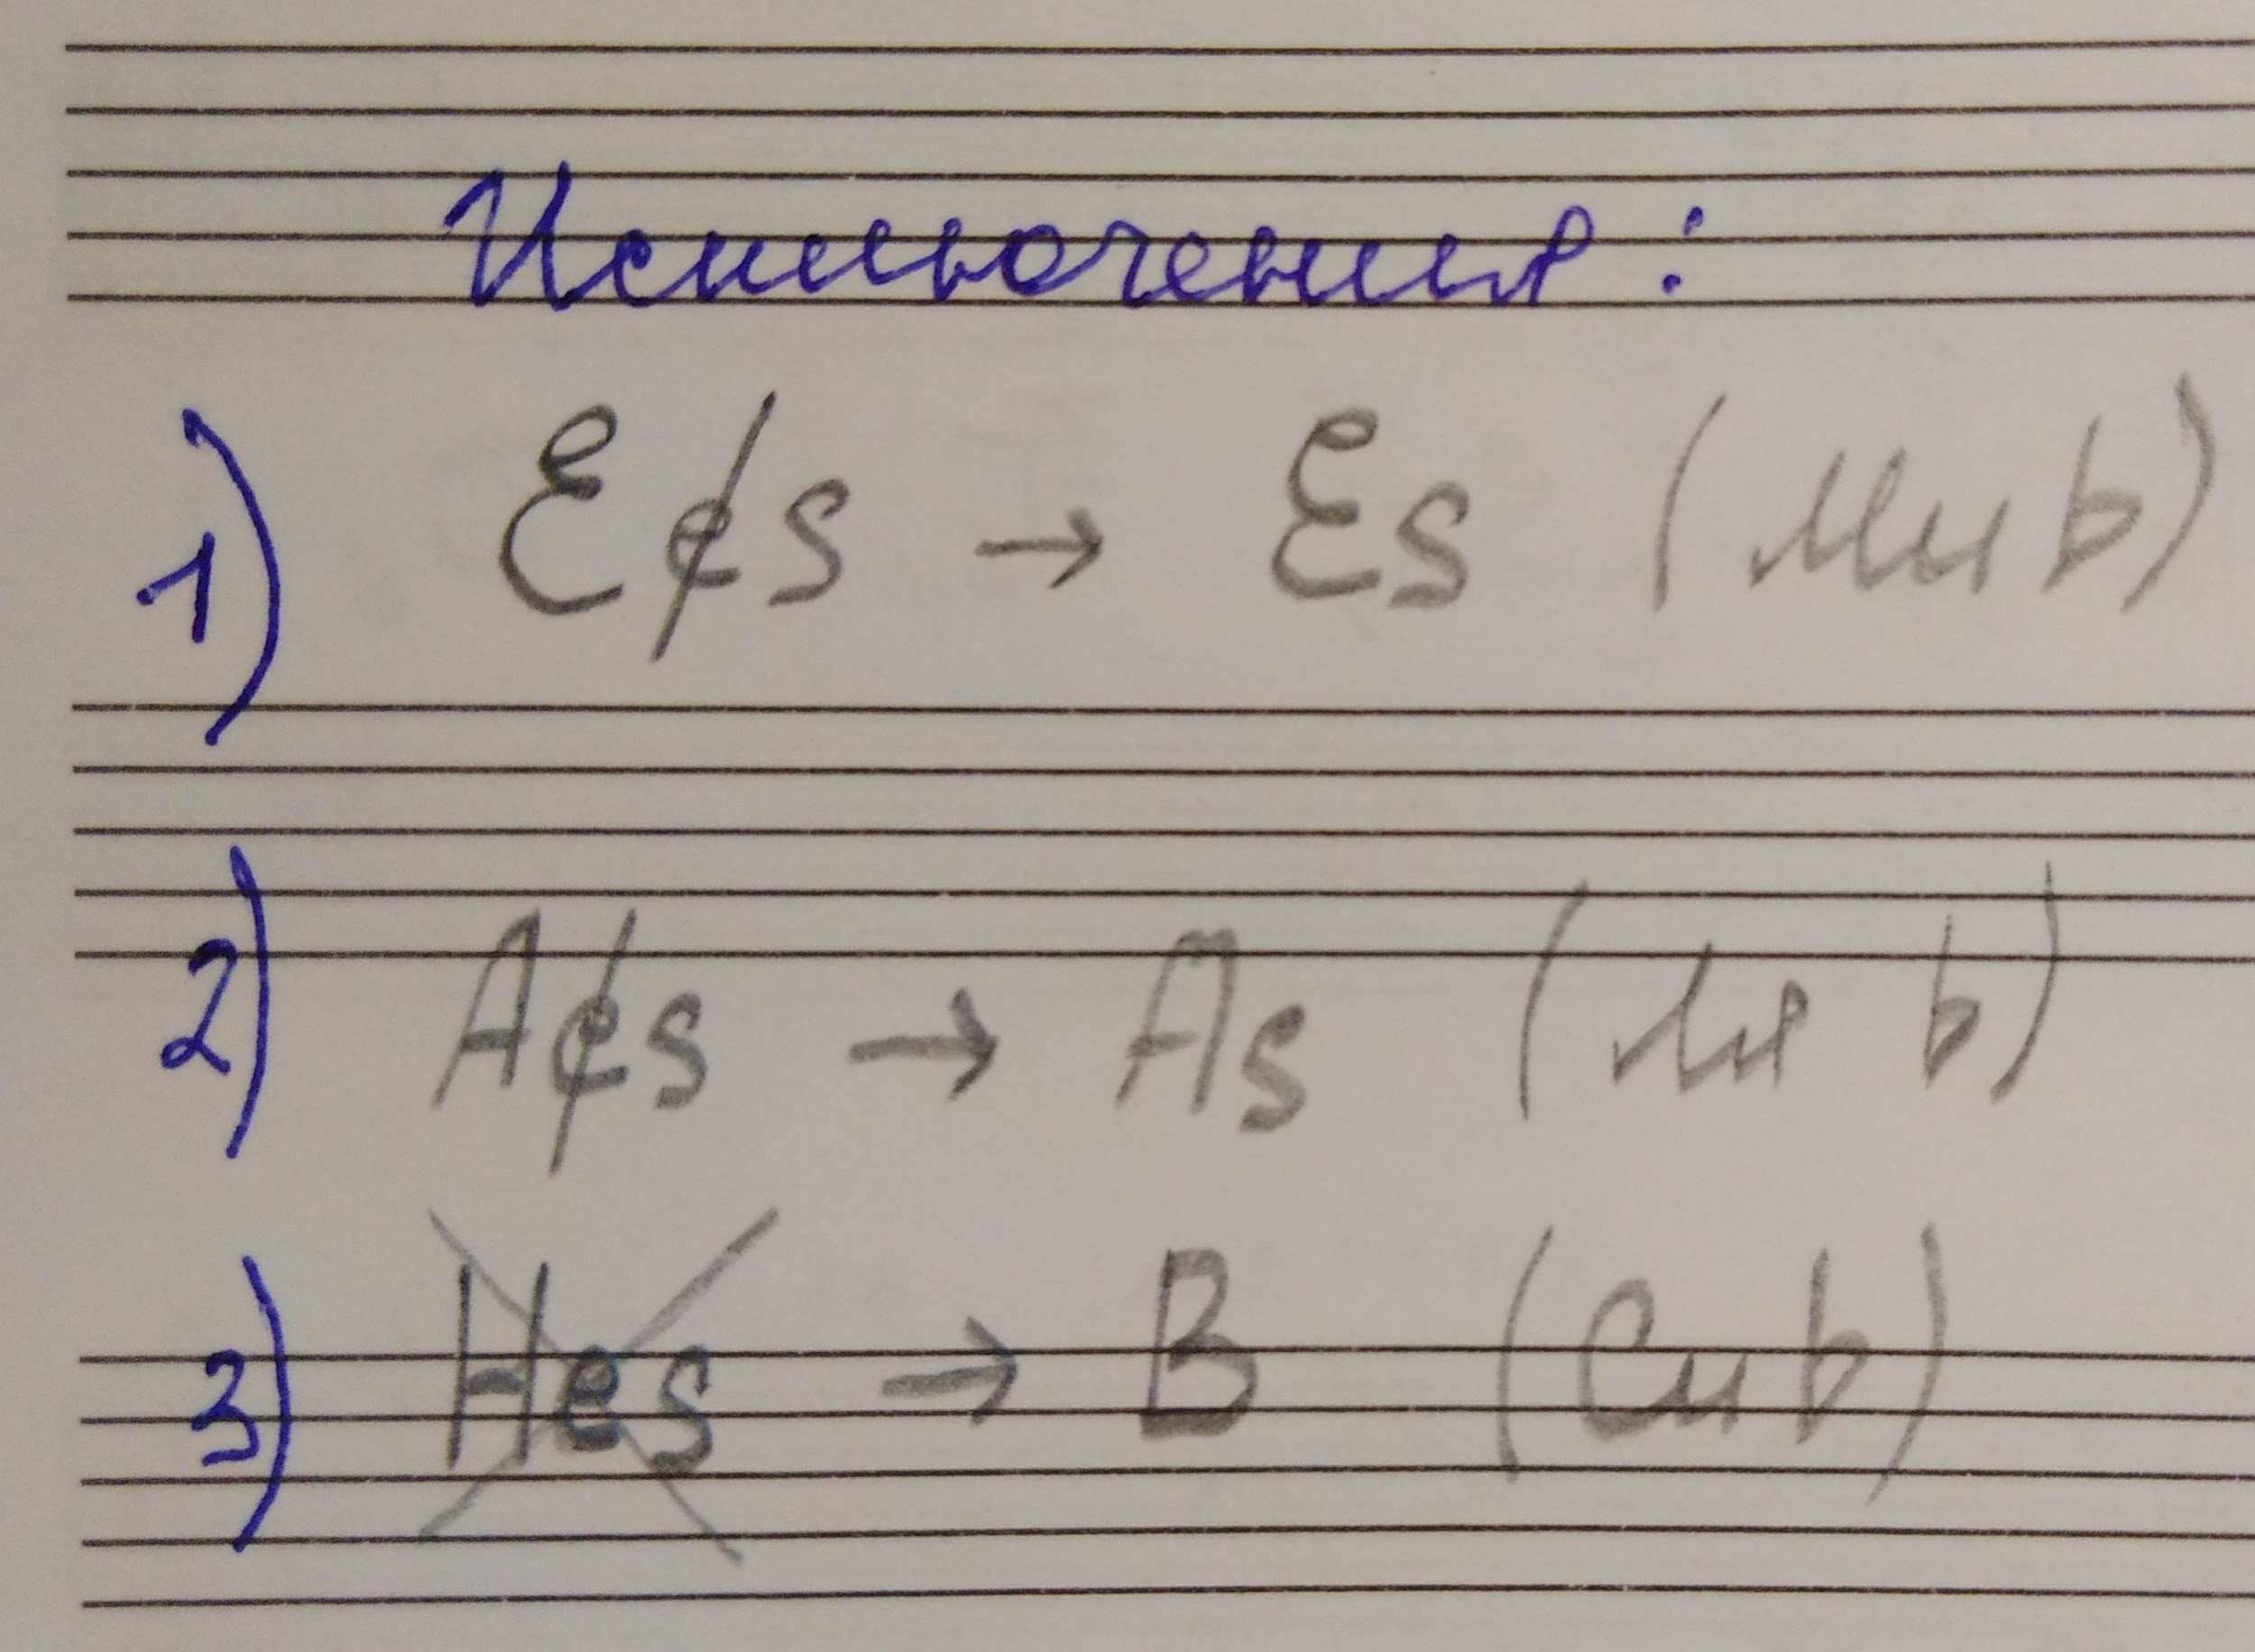 Исключения:
1) Ees → Es (ми b)
2) Aes → As (ля b)
3) Hes → B (Си b)